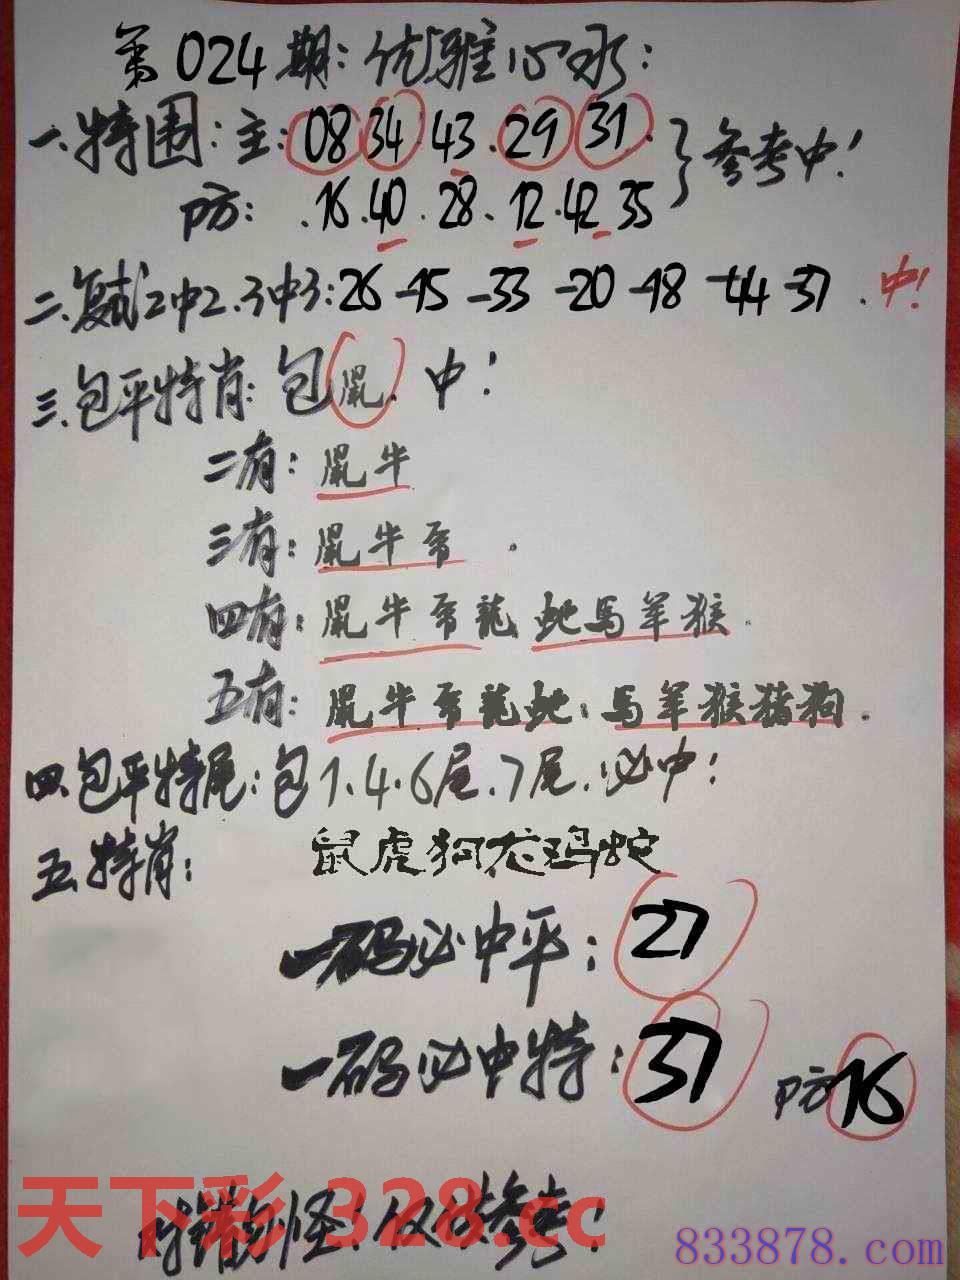 第024期:优雅心水:
一.特围:主:08 34.43.29 31.}参考中!
防:.16.40.28.12.42 35
二.复试2中2.3中3:26-15-33-20-18-44-37.中!
三.包平特肖:包鼠.中!
二有:鼠牛
三有:鼠牛虎.
四有:鼠牛虎龍 蛇馬羊猴.
五有:鼠牛虎龍蛇.馬羊猴豬狗.
四.包平特尾:包1.4.6尾.7尾.必中!
五.特肖:鼠虎狗龙鸡蛇
一码必中平:27
一码必中特:37 防16
对错勿怪!仅供参考!
天下彩 328.cc
833878.com